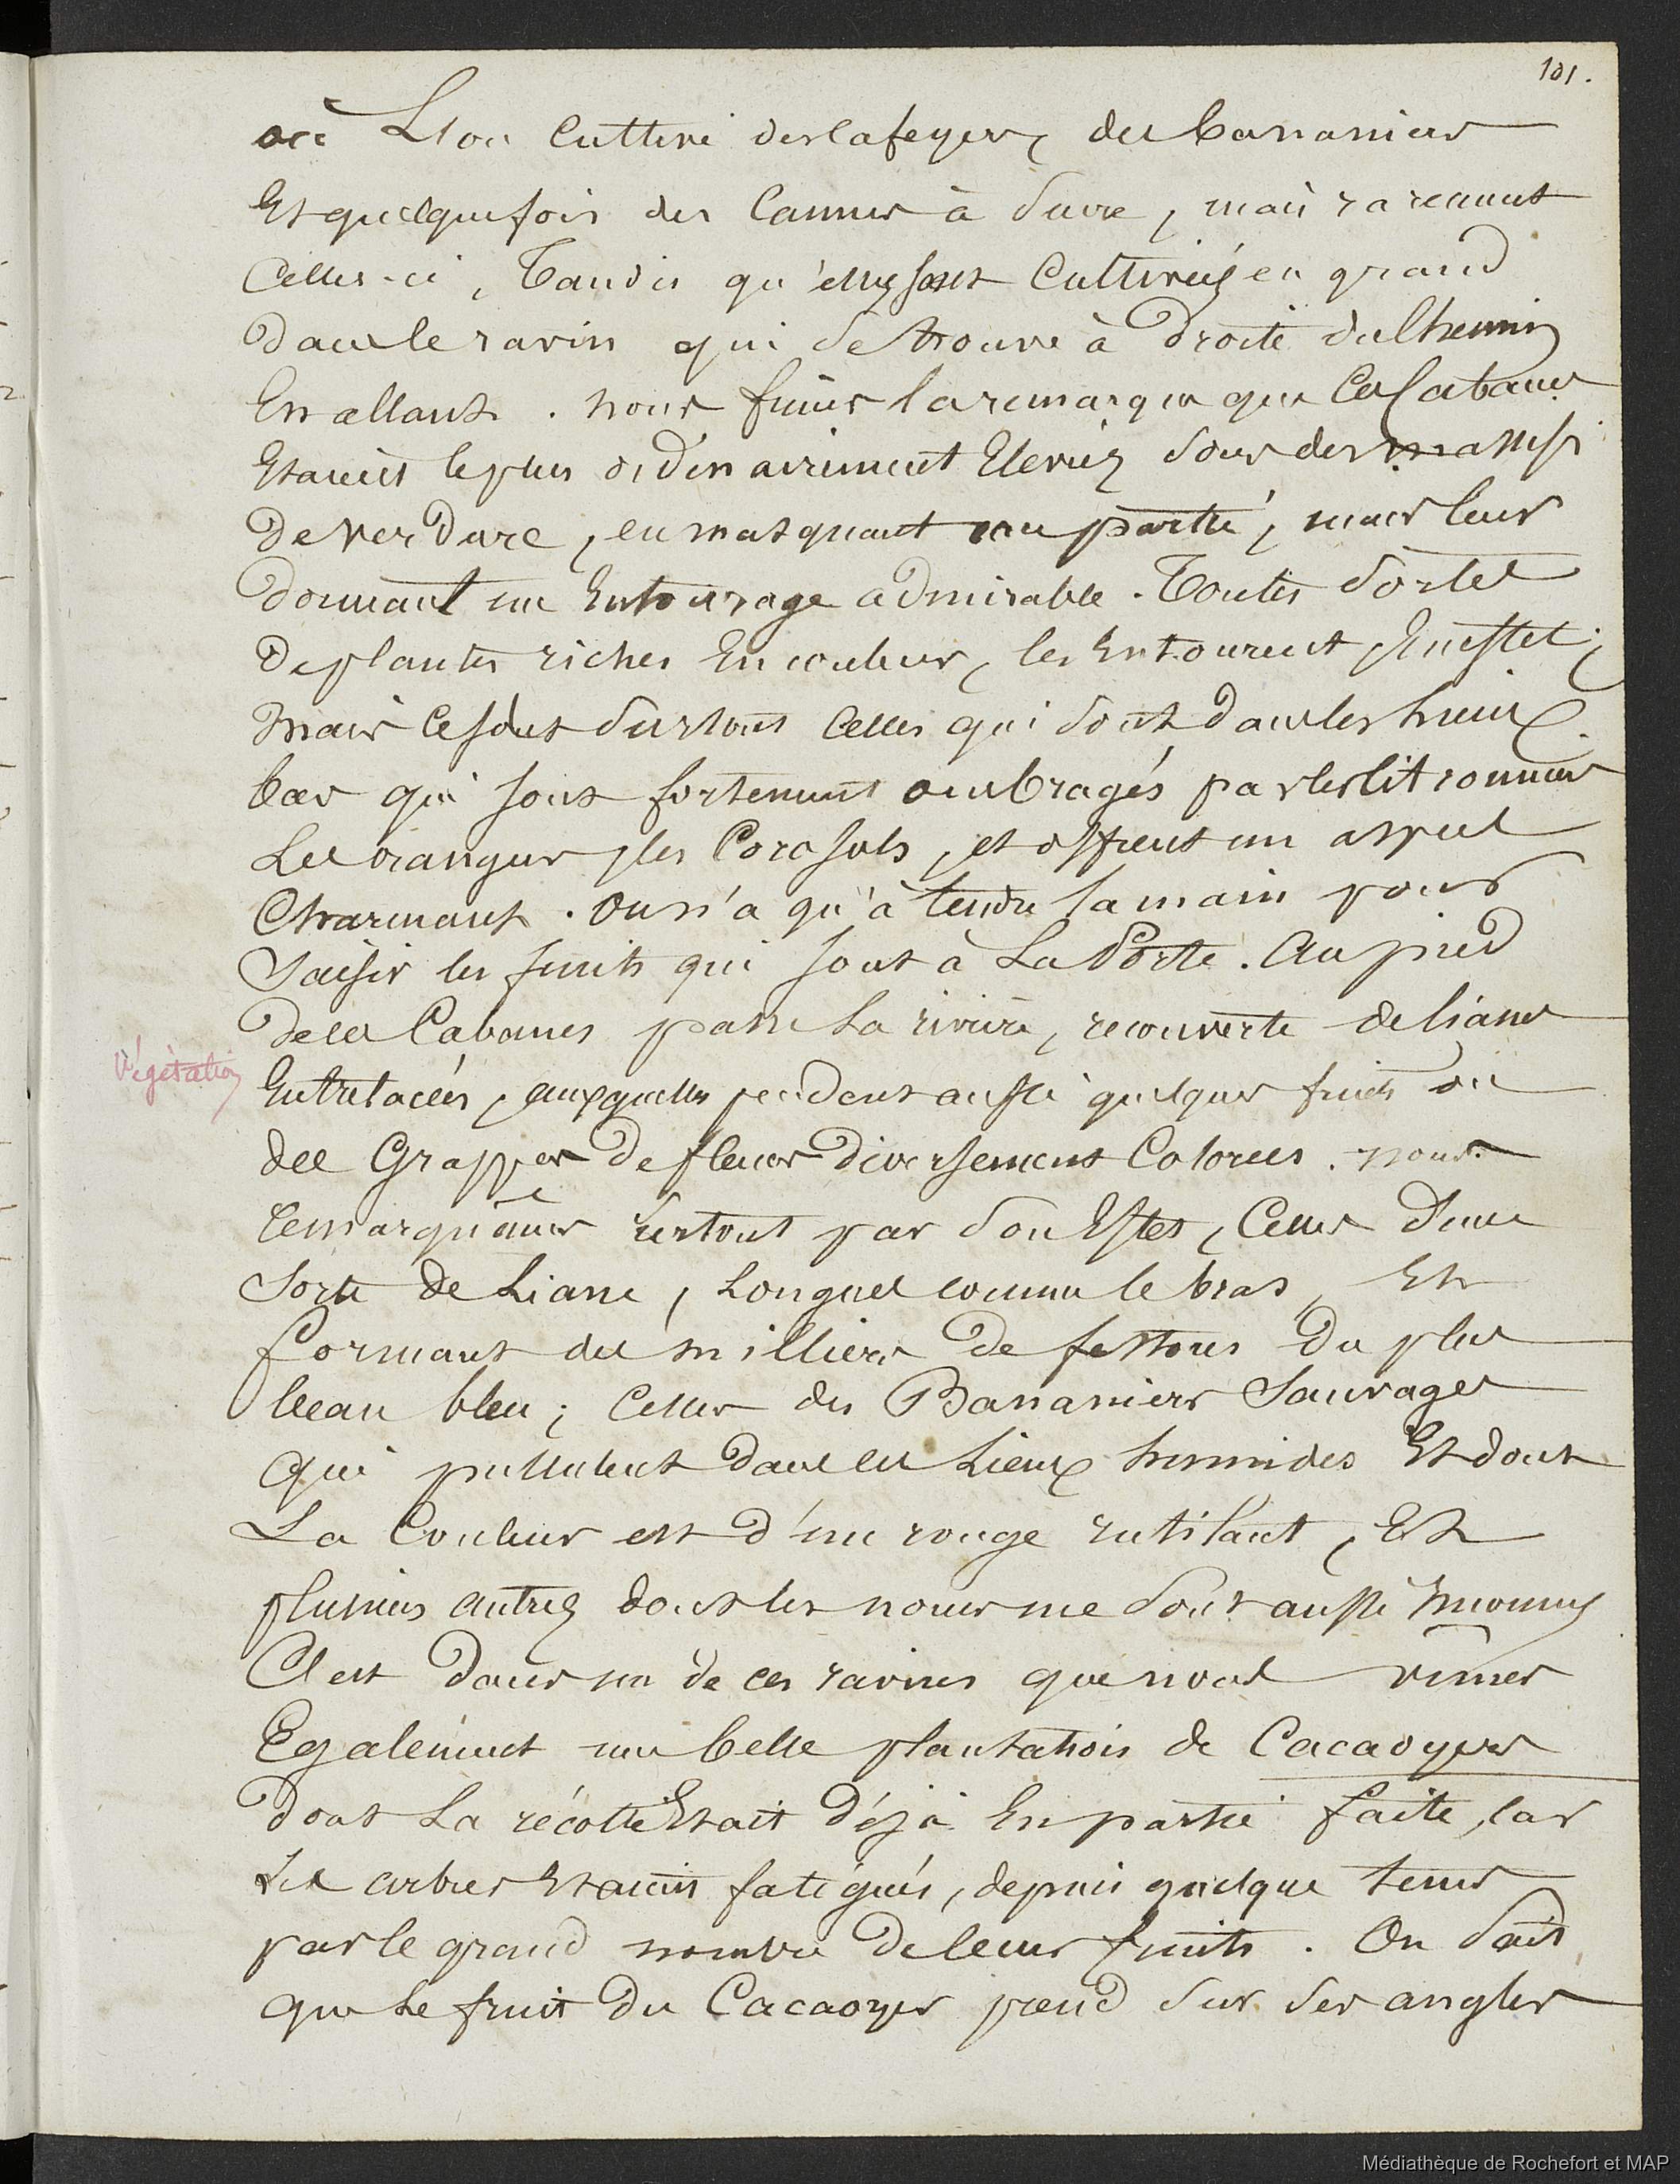 101.
où L'on Cultive des Cafeyers, des bananiers
Et quelquefois des Cannes à Sucre, mais rarement
Celles-ci, Tandis qu'elles sont Cultivées en grand
Dans le ravin qui se trouve à Droite du Chemin
En allant. nous fimes la remarque que Ces Cabanes
Etaient le plus ordinairement Elevées Sous des massifs
De verdure, en masquant une partie, mais leur
Donnant un Entourage admirable. Toutes Sortes
De plantes riches En couleur, les Entourent, En effet;
Mais Ce sont Surtout Celles qui sont Dans les lieux
bas qui sont fortement ombragés par les Citronniers
Les orangers, les Corosols, et offrent un aspect
Charmant. On n'a qu'à tendre la main pour
Saisir les fruits qui sont à La Porte. Au pied
De ces Cabanes passe La rivière, recouverte de lianes
Végétation
Entrelacées, auxquelles pendent aussi quelques fruits ou
des Grappes De fleurs Diversement Colorées. nous
Remarquâmes surtout par Son Effet, Celles D'une
Sorte de Liane, Longues comme le bras, Et
formant des milliers De festons Du plus
beau bleu; Celles des Bananiers Sauvages
qui pullulent Dans les Lieux humides Et dont
La Couleur est d'un rouge rutilant, Et
plusieurs autres dont les noms me Sont aussi Inconnus
C'est Dans un de ces ravins que nous vîmes
Egalement une belle plantation de Cacaoyers
Dont La récolte Etait Déjà En partie faite, car
Les arbres Etaient fatigués, depuis quelque tems
par le grand nombre De leurs fruits. On Sait
que Le fruit Du Cacaoyer pend Sur Ses angles
Médiathèque de Rochefort et MAP